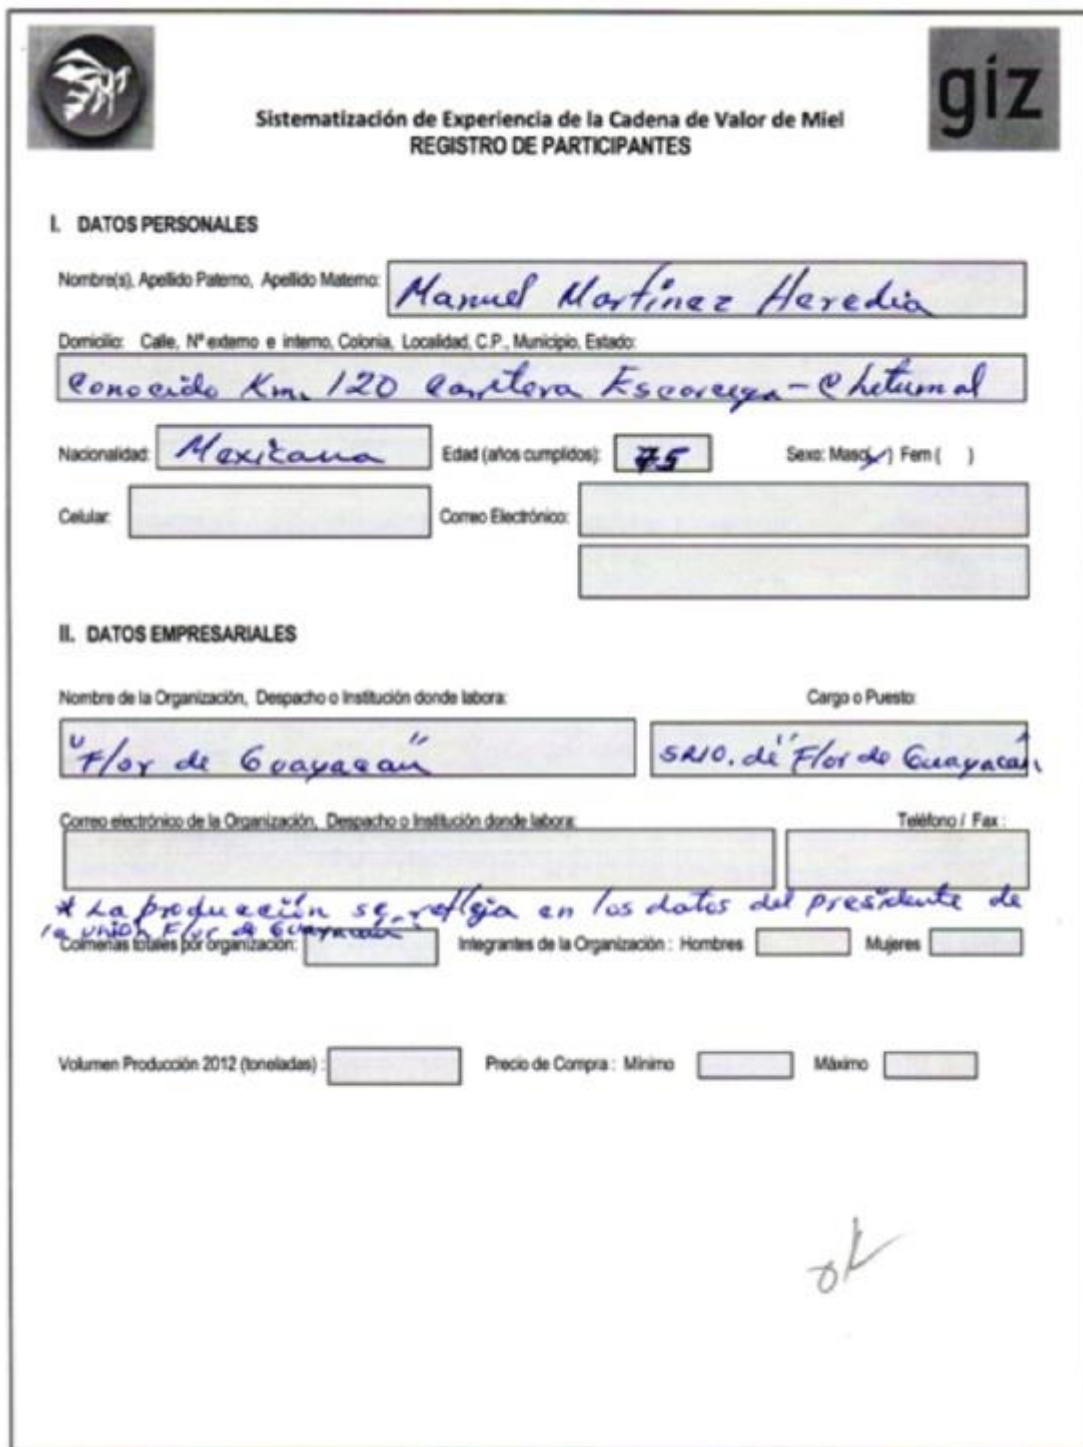 giz
Sistematización de Experiencia de la Cadena de Valor de Miel
REGISTRO DE PARTICIPANTES
I. DATOS PERSONALES
Nombre(s), Apellido Paterno, Apellido Materno: Manuel Martínez Heredia
Domicilio: Calle, Nº externo e interno, Colonia, Localidad, C.P., Municipio, Estado:
Conocido Km. 120 Carretera Escarcega - Chetumal
Nacionalidad: Mexicana Edad (años cumplidos): 75 Sexo: Masc(✓) Fem ( )
Celular: Correo Electrónico:
II. DATOS EMPRESARIALES
Nombre de la Organización, Despacho o Institución donde labora: Cargo o Puesto:
"Flor de Guayacan" SRIO. de "Flor de Guayacán"
Correo electrónico de la Organización, Despacho o Institución donde labora: Teléfono / Fax :
* La producción se refleja en los datos del presidente de
la unión Flor de Guayacán.
Colmenas totales por organización: Integrantes de la Organización : Hombres Mujeres
Volumen Producción 2012 (toneladas) : Precio de Compra : Mínimo Máximo
ok